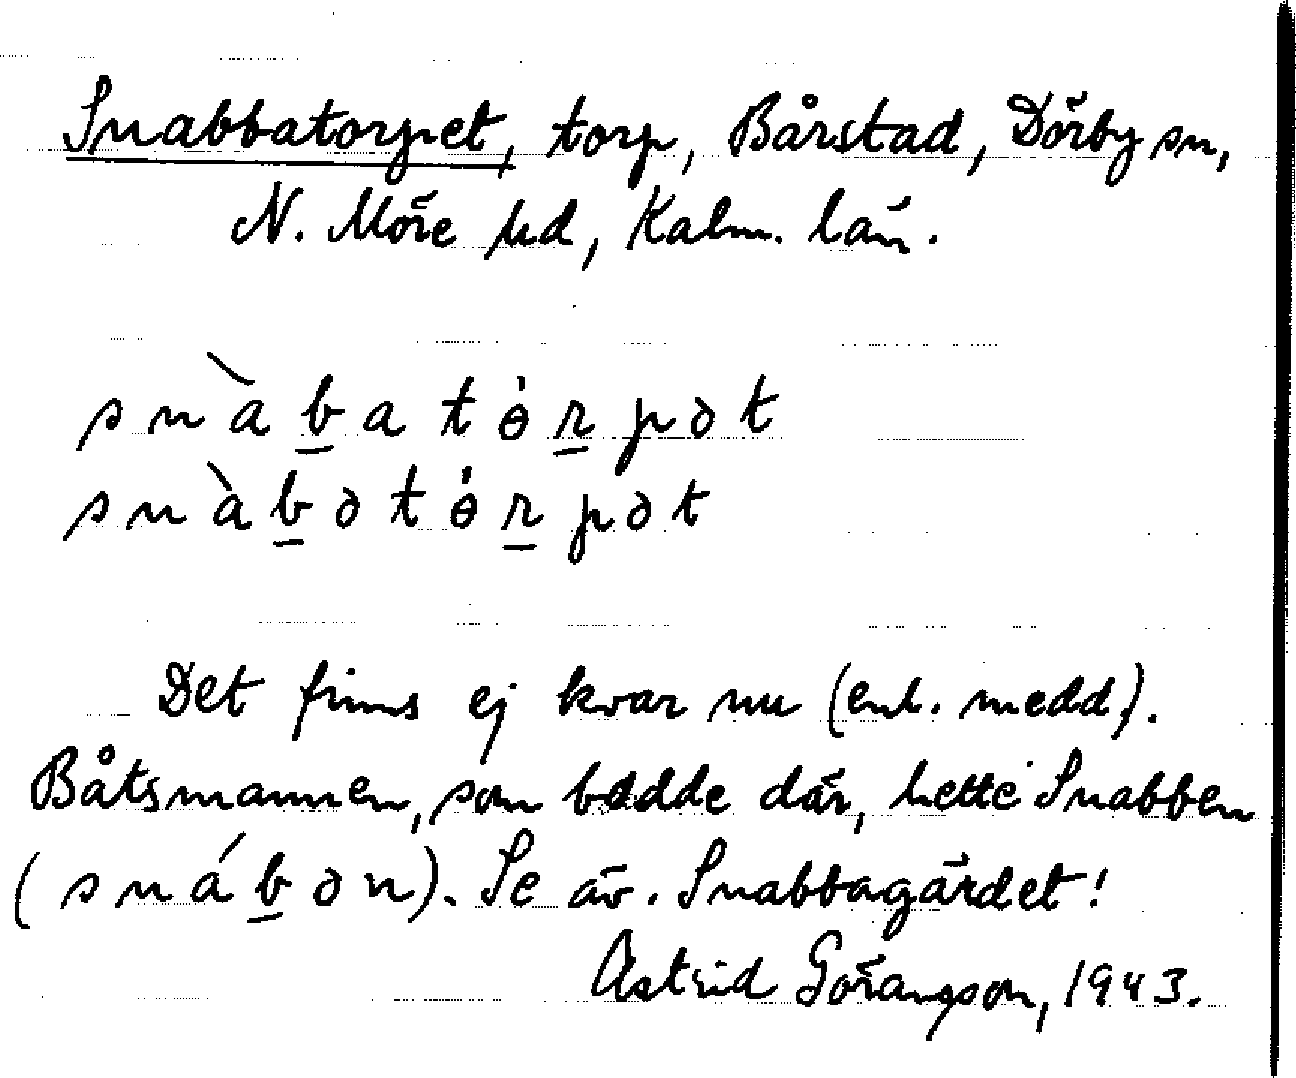 Snabbatorpet, torp, Bårstad, Dörby sn,
N. Möre hd, Kalm. län.
snàb̲atɵ̇r̲pət
snàb̲ətɵ̇r̲pət
Det finns ej kvar nu (enl. medd).
Båtsmannen, som bodde där, hette Snabben
(snáb̲ən). Se äv. Snabbagärdet!
Astrid Göransson, 1943.